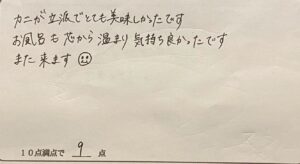 カニが立派でとても美味しかったです
お風呂も芯から温まり気持ち良かったです
また来ます☺
10点満点で 9 点